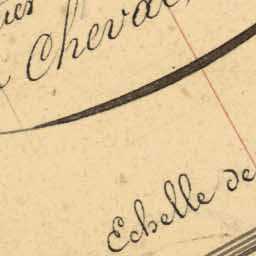 Cheval
Echelle de